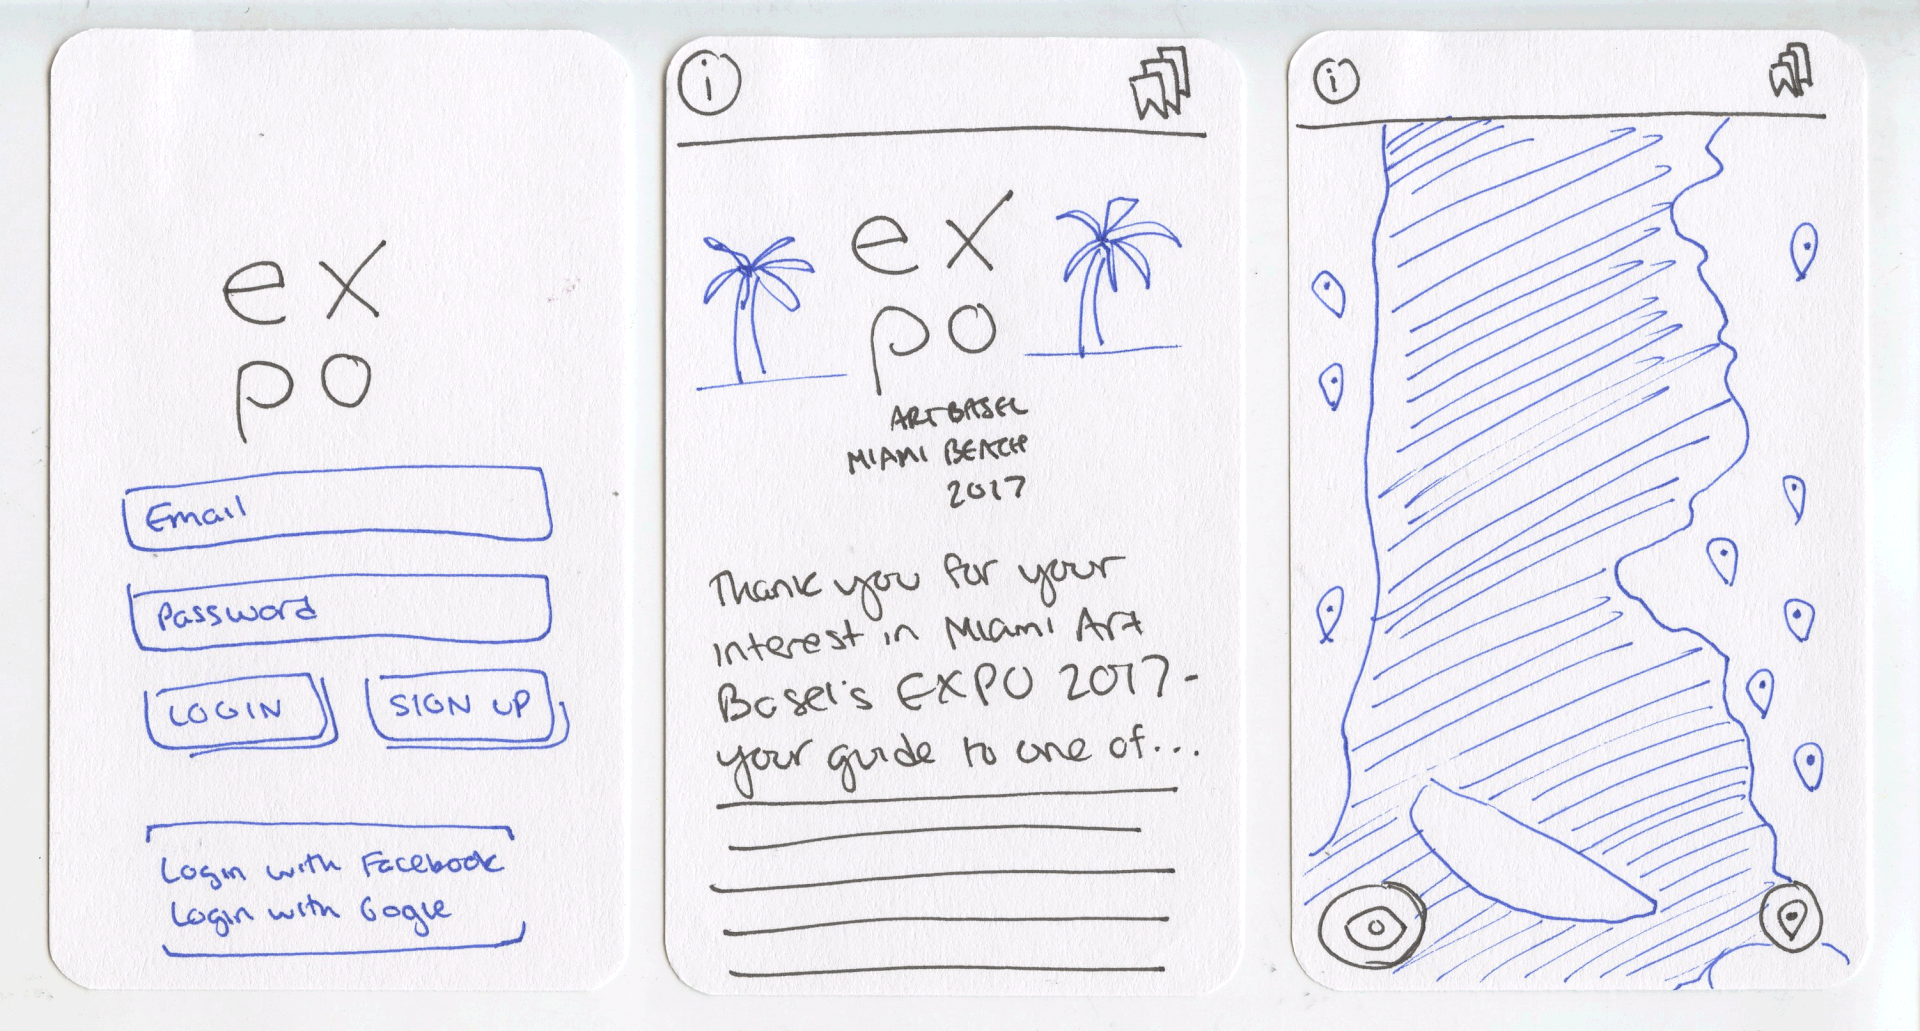 ex
po
Email
Password
LOGIN
SIGN UP
Login with Facebook
Login with Gogle
i
ex
po
ART BASEL
MIAMI BEACH
2017
Thank you for your
interest in Miami Art
Basel's EXPO 2017-
your guide to one of...
i